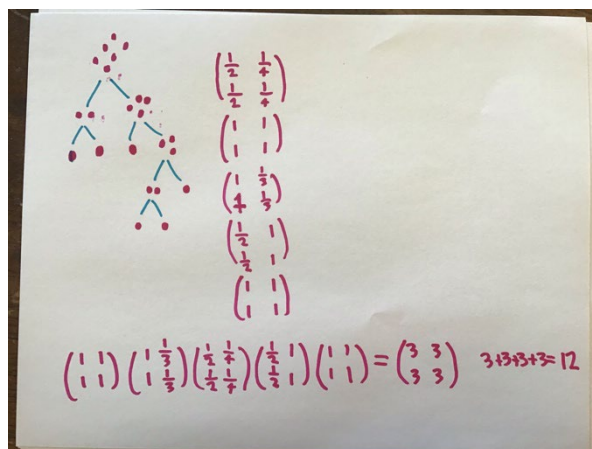 (1/2 1/4
1/2 1/4)
(1 1
1 1)
(1 1/3
1 1/3)
(1/2 1
1/2 1)
(1 1
1 1)
(1 1
1 1) (1 1/3
1 1/3) (1/2 1/4
1/2 1/4) (1/2 1
1/2 1) (1 1
1 1) = (3 3
3 3) 3+3+3+3=12